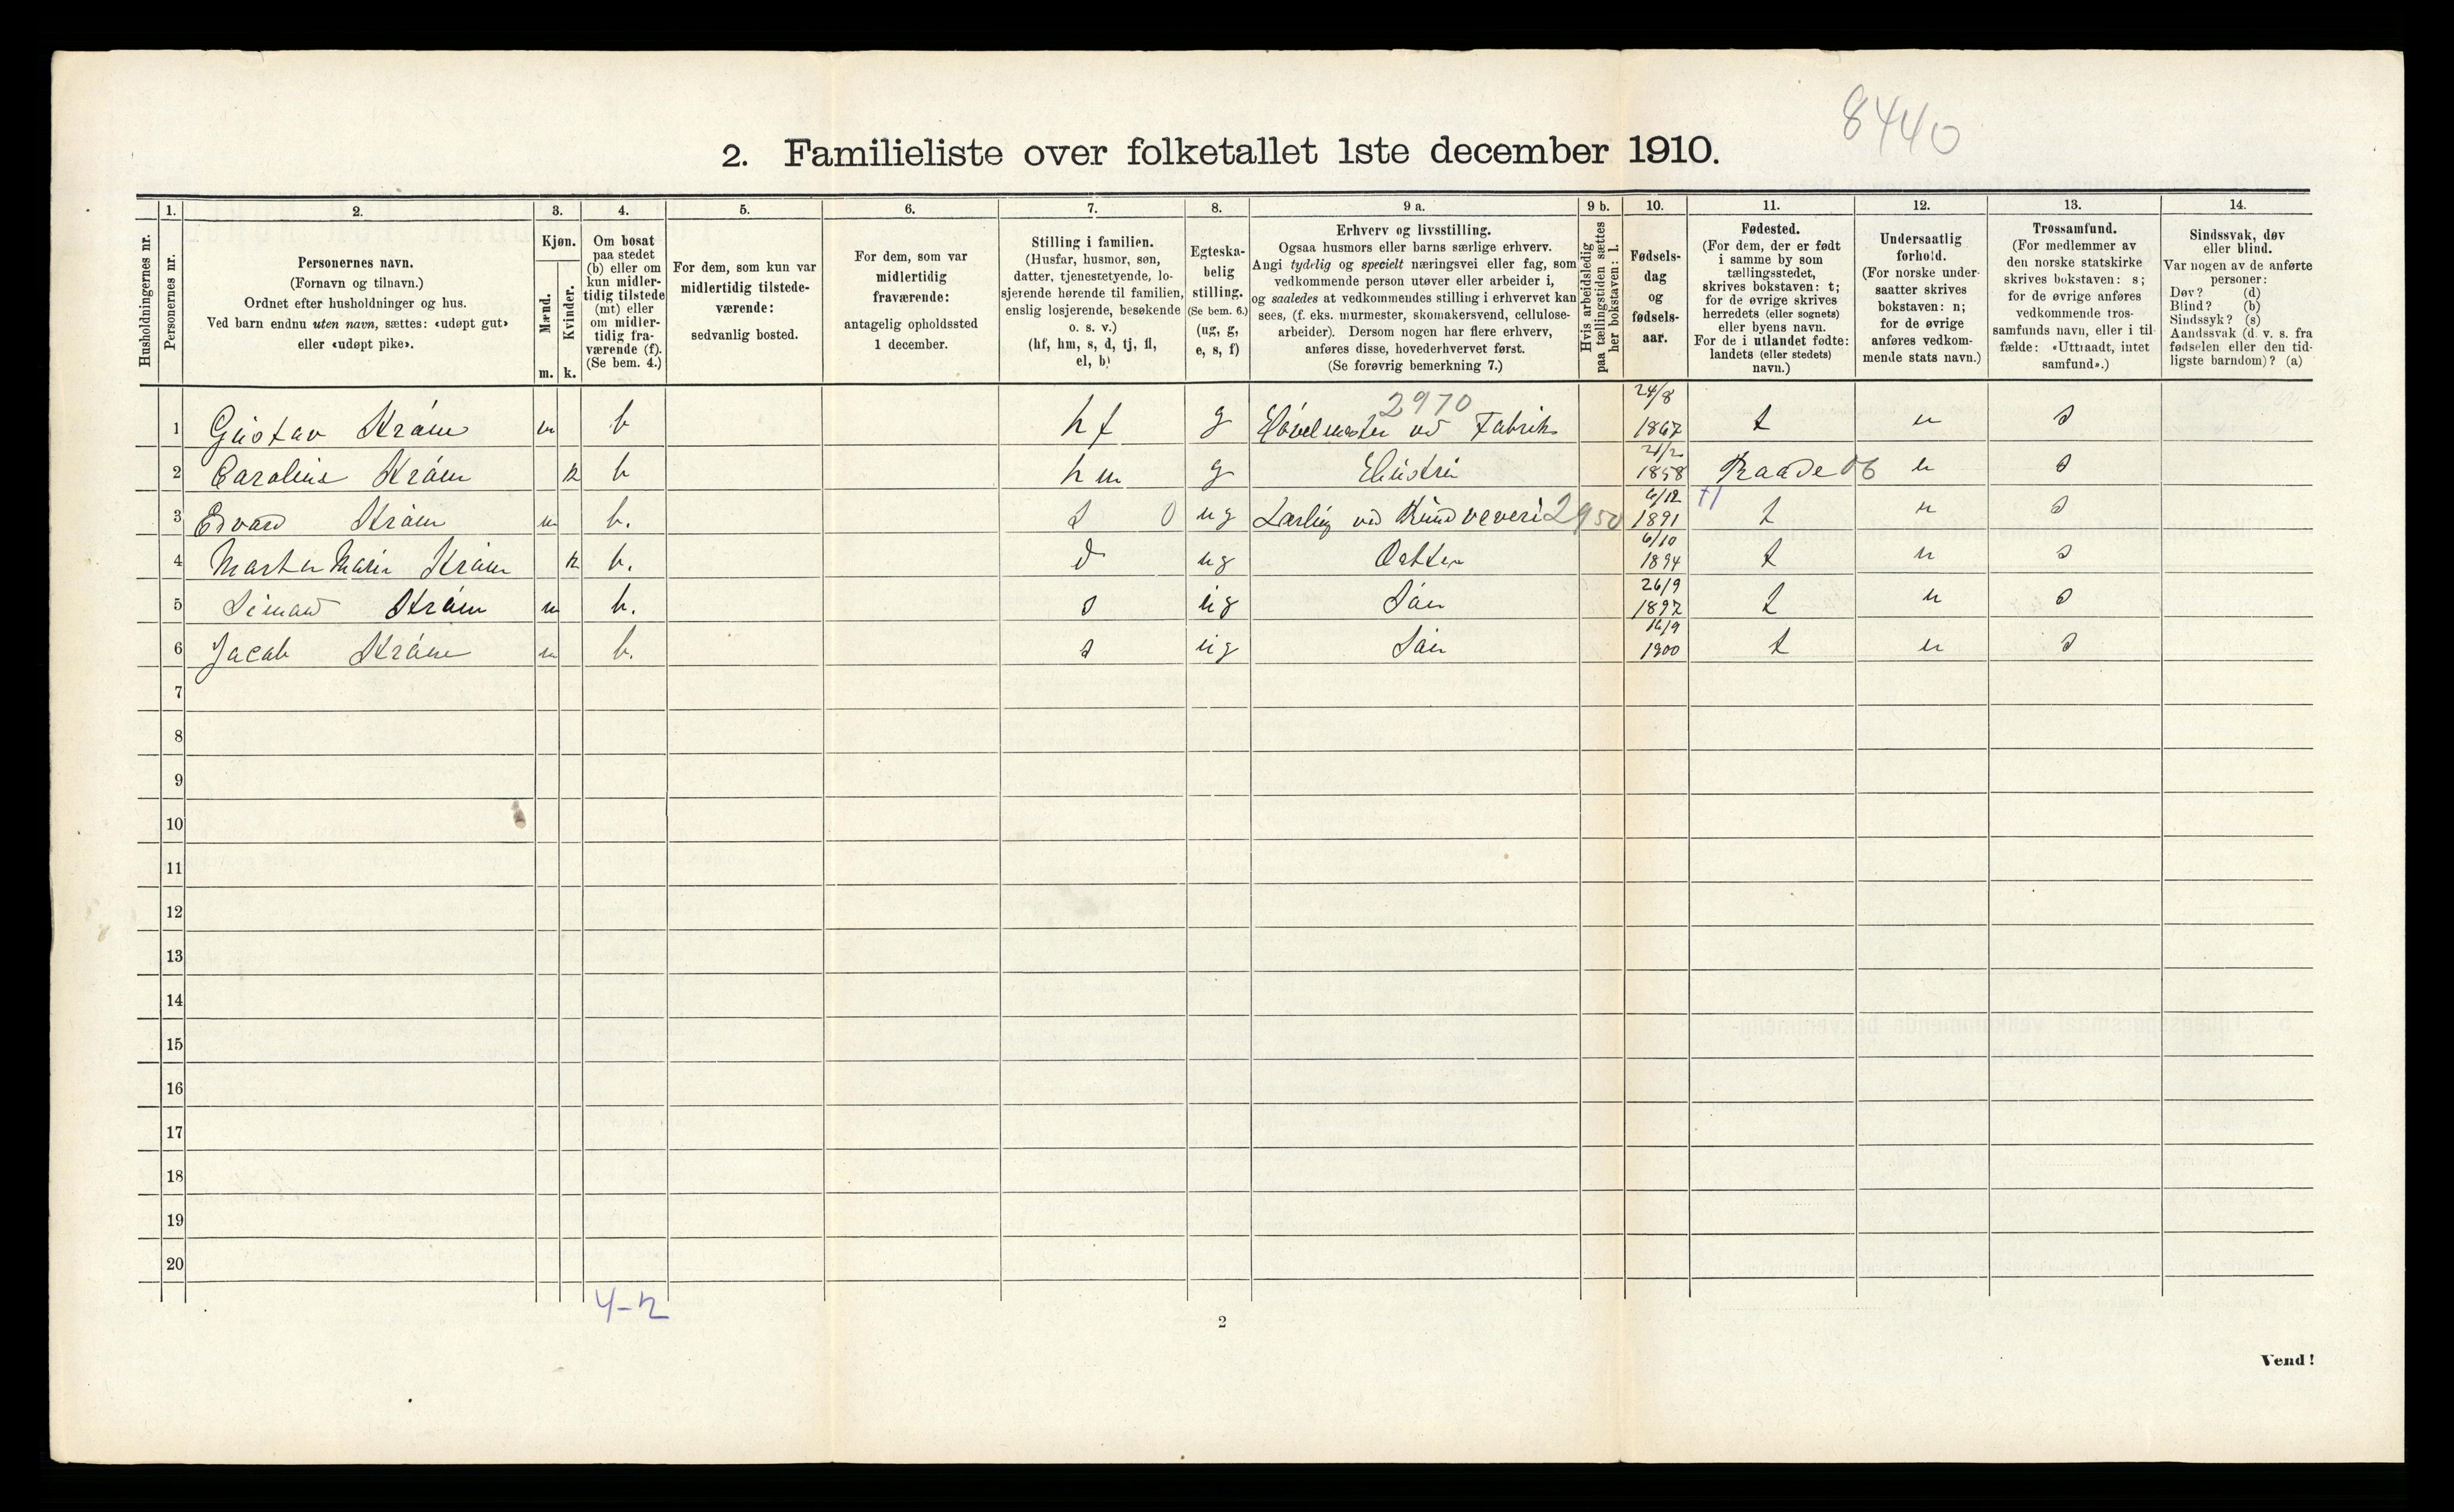 8440
2. Familieliste over folketallet 1ste december 1910.
1. 2. 3. 4. 5. 6. 7. 8. 9 a. 9 b. 10. 11. 12. 13. 14.
Husholdningernes nr.
Personernes nr.
Personernes navn.
(Fornavn og tilnavn.)
Ordnet efter husholdninger og hus.
Ved barn endnu uten navn, sættes: «udøpt gut»
eller «udøpt pike».
Kjøn.
Mænd.
Kvinder.
m. k.
Om bosat
paa stedet
(b) eller om
kun midler-
tidig tilstede
(mt) eller
om midler-
tidig fra-
værende (f).
(Se bem. 4.)
For dem, som kun var
midlertidig tilstede-
værende:
sedvanlig bosted.
For dem, som var
midlertidig
fraværende:
antagelig opholdssted
1 december.
Stilling i familien.
(Husfar, husmor, søn,
datter, tjenestetyende, lo-
sjerende hørende til familien,
enslig losjerende, besøkende
o. s. v.)
(hf, hm, s, d, tj, fl,
el, b)
Egteska-
belig
stilling.
(Se bem. 6.)
(ug, g,
e, s, f)
Erhverv og livsstilling.
Ogsaa husmors eller barns særlige erhverv.
Angi tydelig og specielt næringsvei eller fag, som
vedkommende person utøver eller arbeider i,
og saaledes at vedkommendes stilling i erhvervet kan
sees, (f. eks. murmester, skomakersvend, cellulose-
arbeider). Dersom nogen har flere erhverv,
anføres disse, hovederhvervet først.
(Se forøvrig bemerkning 7.)
Hvis arbeidsledig
paa tællingstiden sættes
her bokstaven: l.
Fødsels-
dag
og
fødsels-
aar.
Fødested.
(For dem, der er født
i samme by som
tællingsstedet,
skrives bokstaven: t;
for de øvrige skrives
herredets (eller sognets)
eller byens navn.
For de i utlandet fødte:
landets (eller stedets)
navn.)
Undersaatlig
forhold.
(For norske under-
saatter skrives
bokstaven: n;
for de øvrige
anføres vedkom-
mende stats navn.)
Trossamfund.
(For medlemmer av
den norske statskirke
skrives bokstaven: s;
for de øvrige anføres
vedkommende tros-
samfunds navn, eller i til-
fælde: «Uttraadt, intet
samfund».)
Sindssvak, døv
eller blind.
Var nogen av de anførte
personer:
Døv? (d)
Blind? (b)
Sindssyk? (s)
Aandssvak (d. v. s. fra
fødselen eller den tid-
ligste barndom)? (a)
2970 24/8
1 Gustav m b hf g ved Fabrik 1867 t n s
21/2
2 k b hm g Hustru 1858 Raade 06 n s
6/12 +1
3 Edvard m b. s 0 ug Lærling ved 2950 1891 t n s
6/10
4 Marie k b. d ug Datter 1894 t n s
26/9
5 m b. s ug Søn 1897 t n s
16/9
6 Jacob m b. s ug Søn 1900 t n s
7
8
9
10
11
12
13
14
15
16
17
18
19
20
4-2
2
Vend!